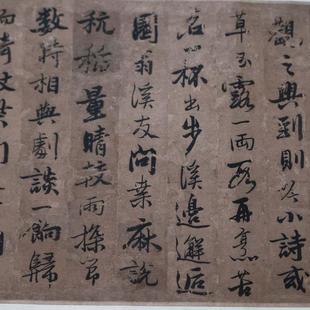 觀之興到則吟小詩或
草玉露一兩段再烹苦
茗一杯出步溪邊邂逅
園翁溪友問桑麻說
秔稻量晴校雨探節
數時相與劇談一餉歸
而倚杖柴門之